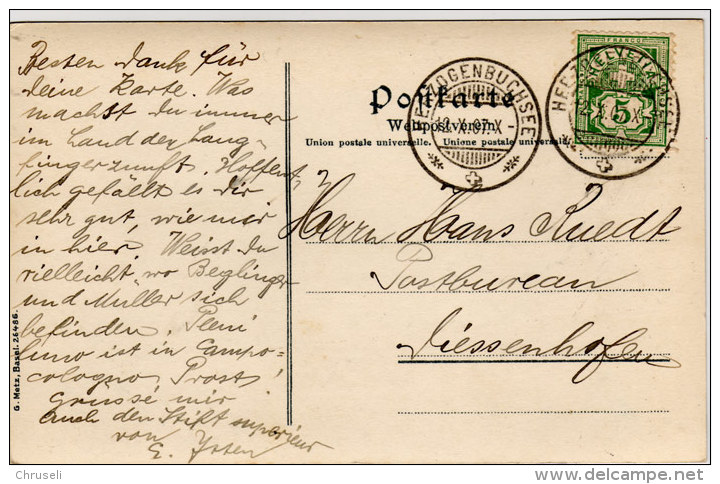 Besten Dank für
deine Karte. Was
machst du immer
im Land der Lang-
fingerzunft. Hoffent-
lich gefällt es dir
sehr gut, wie mir
in hier. Weisst du
vielleicht, wo Beglinger
und Müller sich
befinden.
ist in Campo-
cologno. Prost!
Grüsse mir
auch den Stift
von
E.
G. Metz, Basel. 26486.
Postkarte
Weltpostverein
Union postale universelle. Unione postale universale
HERZOGENBUCHSEE
HELVETIA
FRANCO
5
Herrn Hans Ruedt
Postbureau
Diessenhofen
Chruseli
delcampe.net